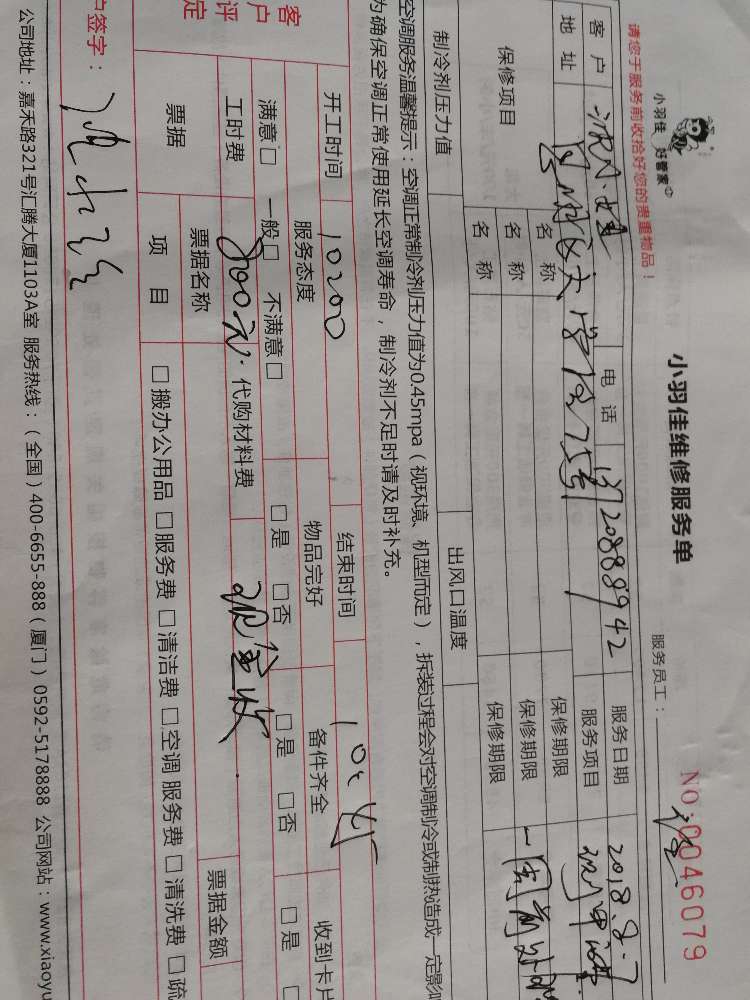 小羽佳 好管家
请您于服务前收拾好您的贵重物品！
小羽佳维修服务单
服务员工：
NO:0046079
客户
电话 13720888942
服务日期 2018.8.7
地址
服务项目
保修项目
名称
保修期限
名称
保修期限
名称
保修期限
制冷剂压力值
出风口温度
空调服务温馨提示：空调正常制冷剂压力值为0.45mpa（视环境、机型而定），拆装过程会对空调制冷或制热造成一定影
为确保空调正常使用延长空调寿命，制冷剂不足时请及时补充。
客户评定
开工时间 10:00
结束时间
服务态度
物品完好
备件齐全
收到卡片
满意□ 一般□ 不满意□
□是 □否
□是 □否
□是
工时费 800元.
代购材料费 现金收
票据
票据名称
票据金额
项目
□搬办公用品 □服务费 □清洁费 □空调服务费 □清洗费 □疏
户签字：
公司地址：嘉禾路321号汇腾大厦1103A室 服务热线：（全国）400-6655-888（厦门）0592-5178888 公司网站：www.xiaoyu